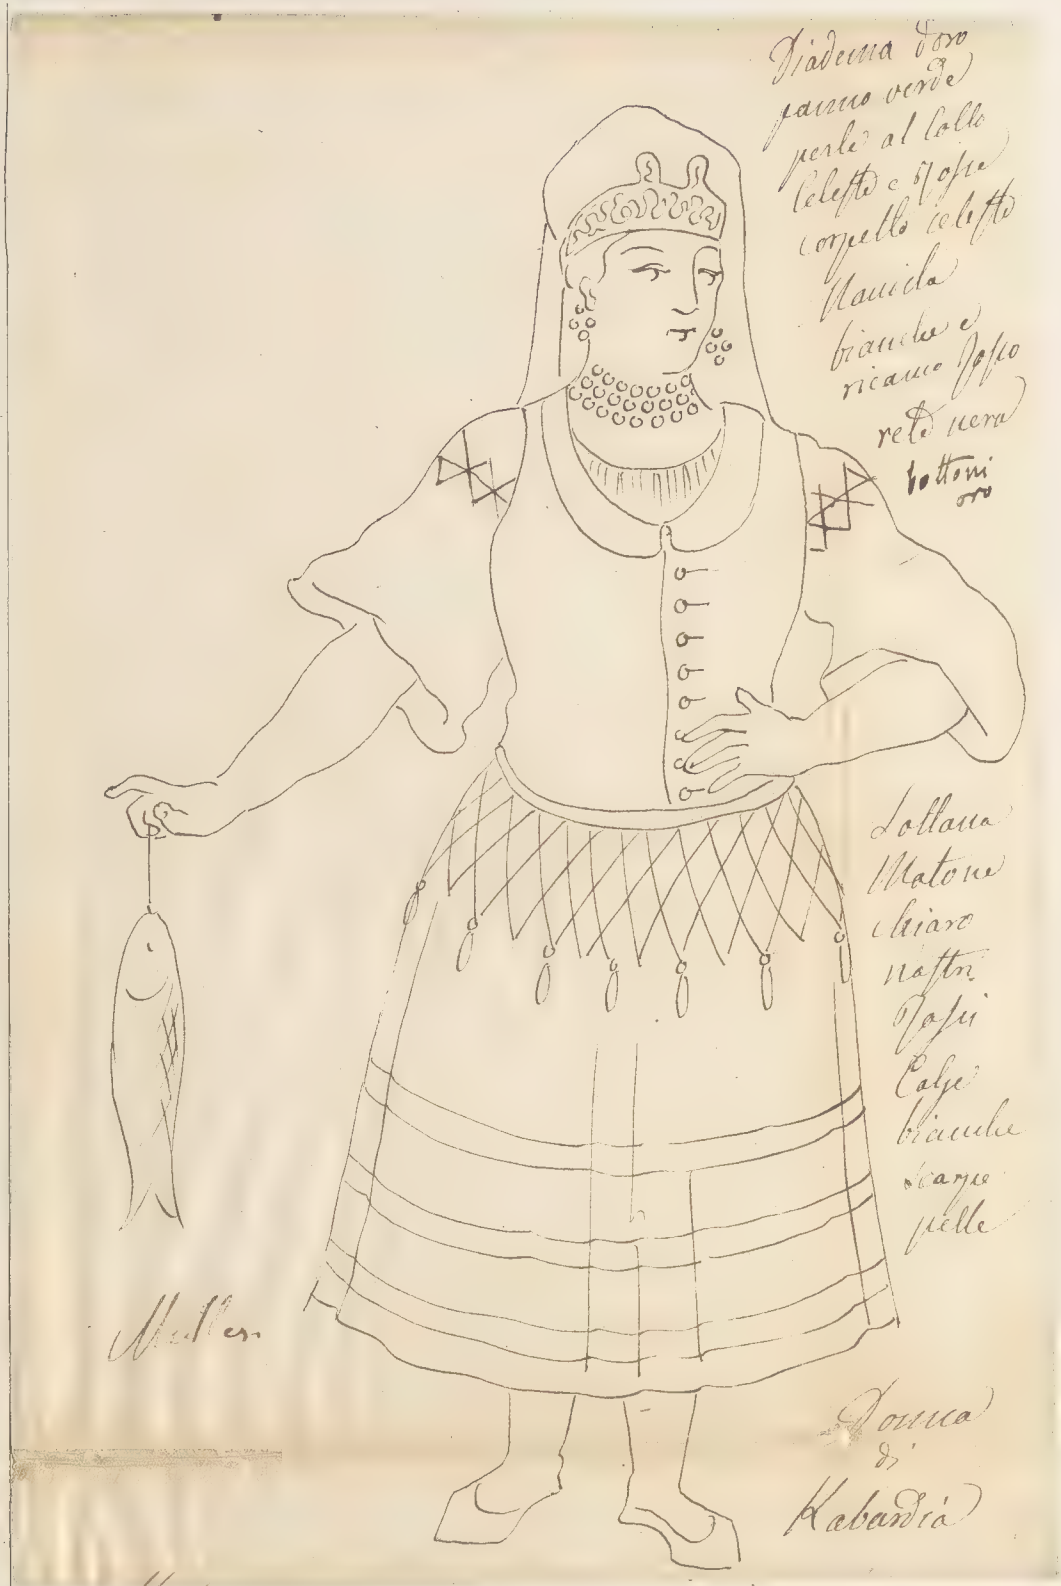 Diadema d'oro
panno verde
perle al Collo
Celeste e Rosse
corpetto celeste
Maniche
bianche e
ricamo Rosso
rete nera
bottoni
oro
Sottana
Matone
chiaro
nastri
Rossi
Calze
bianche
scarpe
pelle
Muller.
Donna
di
Kabardia